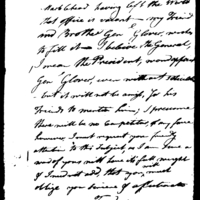 Marblehead having left the World
that office is vacant — my Friend
and Brother Genl Glover, wishes
to fill it — I believe the General,
I mean the President, would appoint
Genl Glover, even without
but it will all be only, for his
Friends to mention him; I presume
there will be no Competitor, of any force
however, I must request your friendly
attention to this subject, as I am sure a
word of yours will have its full weight
if I need will add, that you will much
oblige your Sincere & affectionate